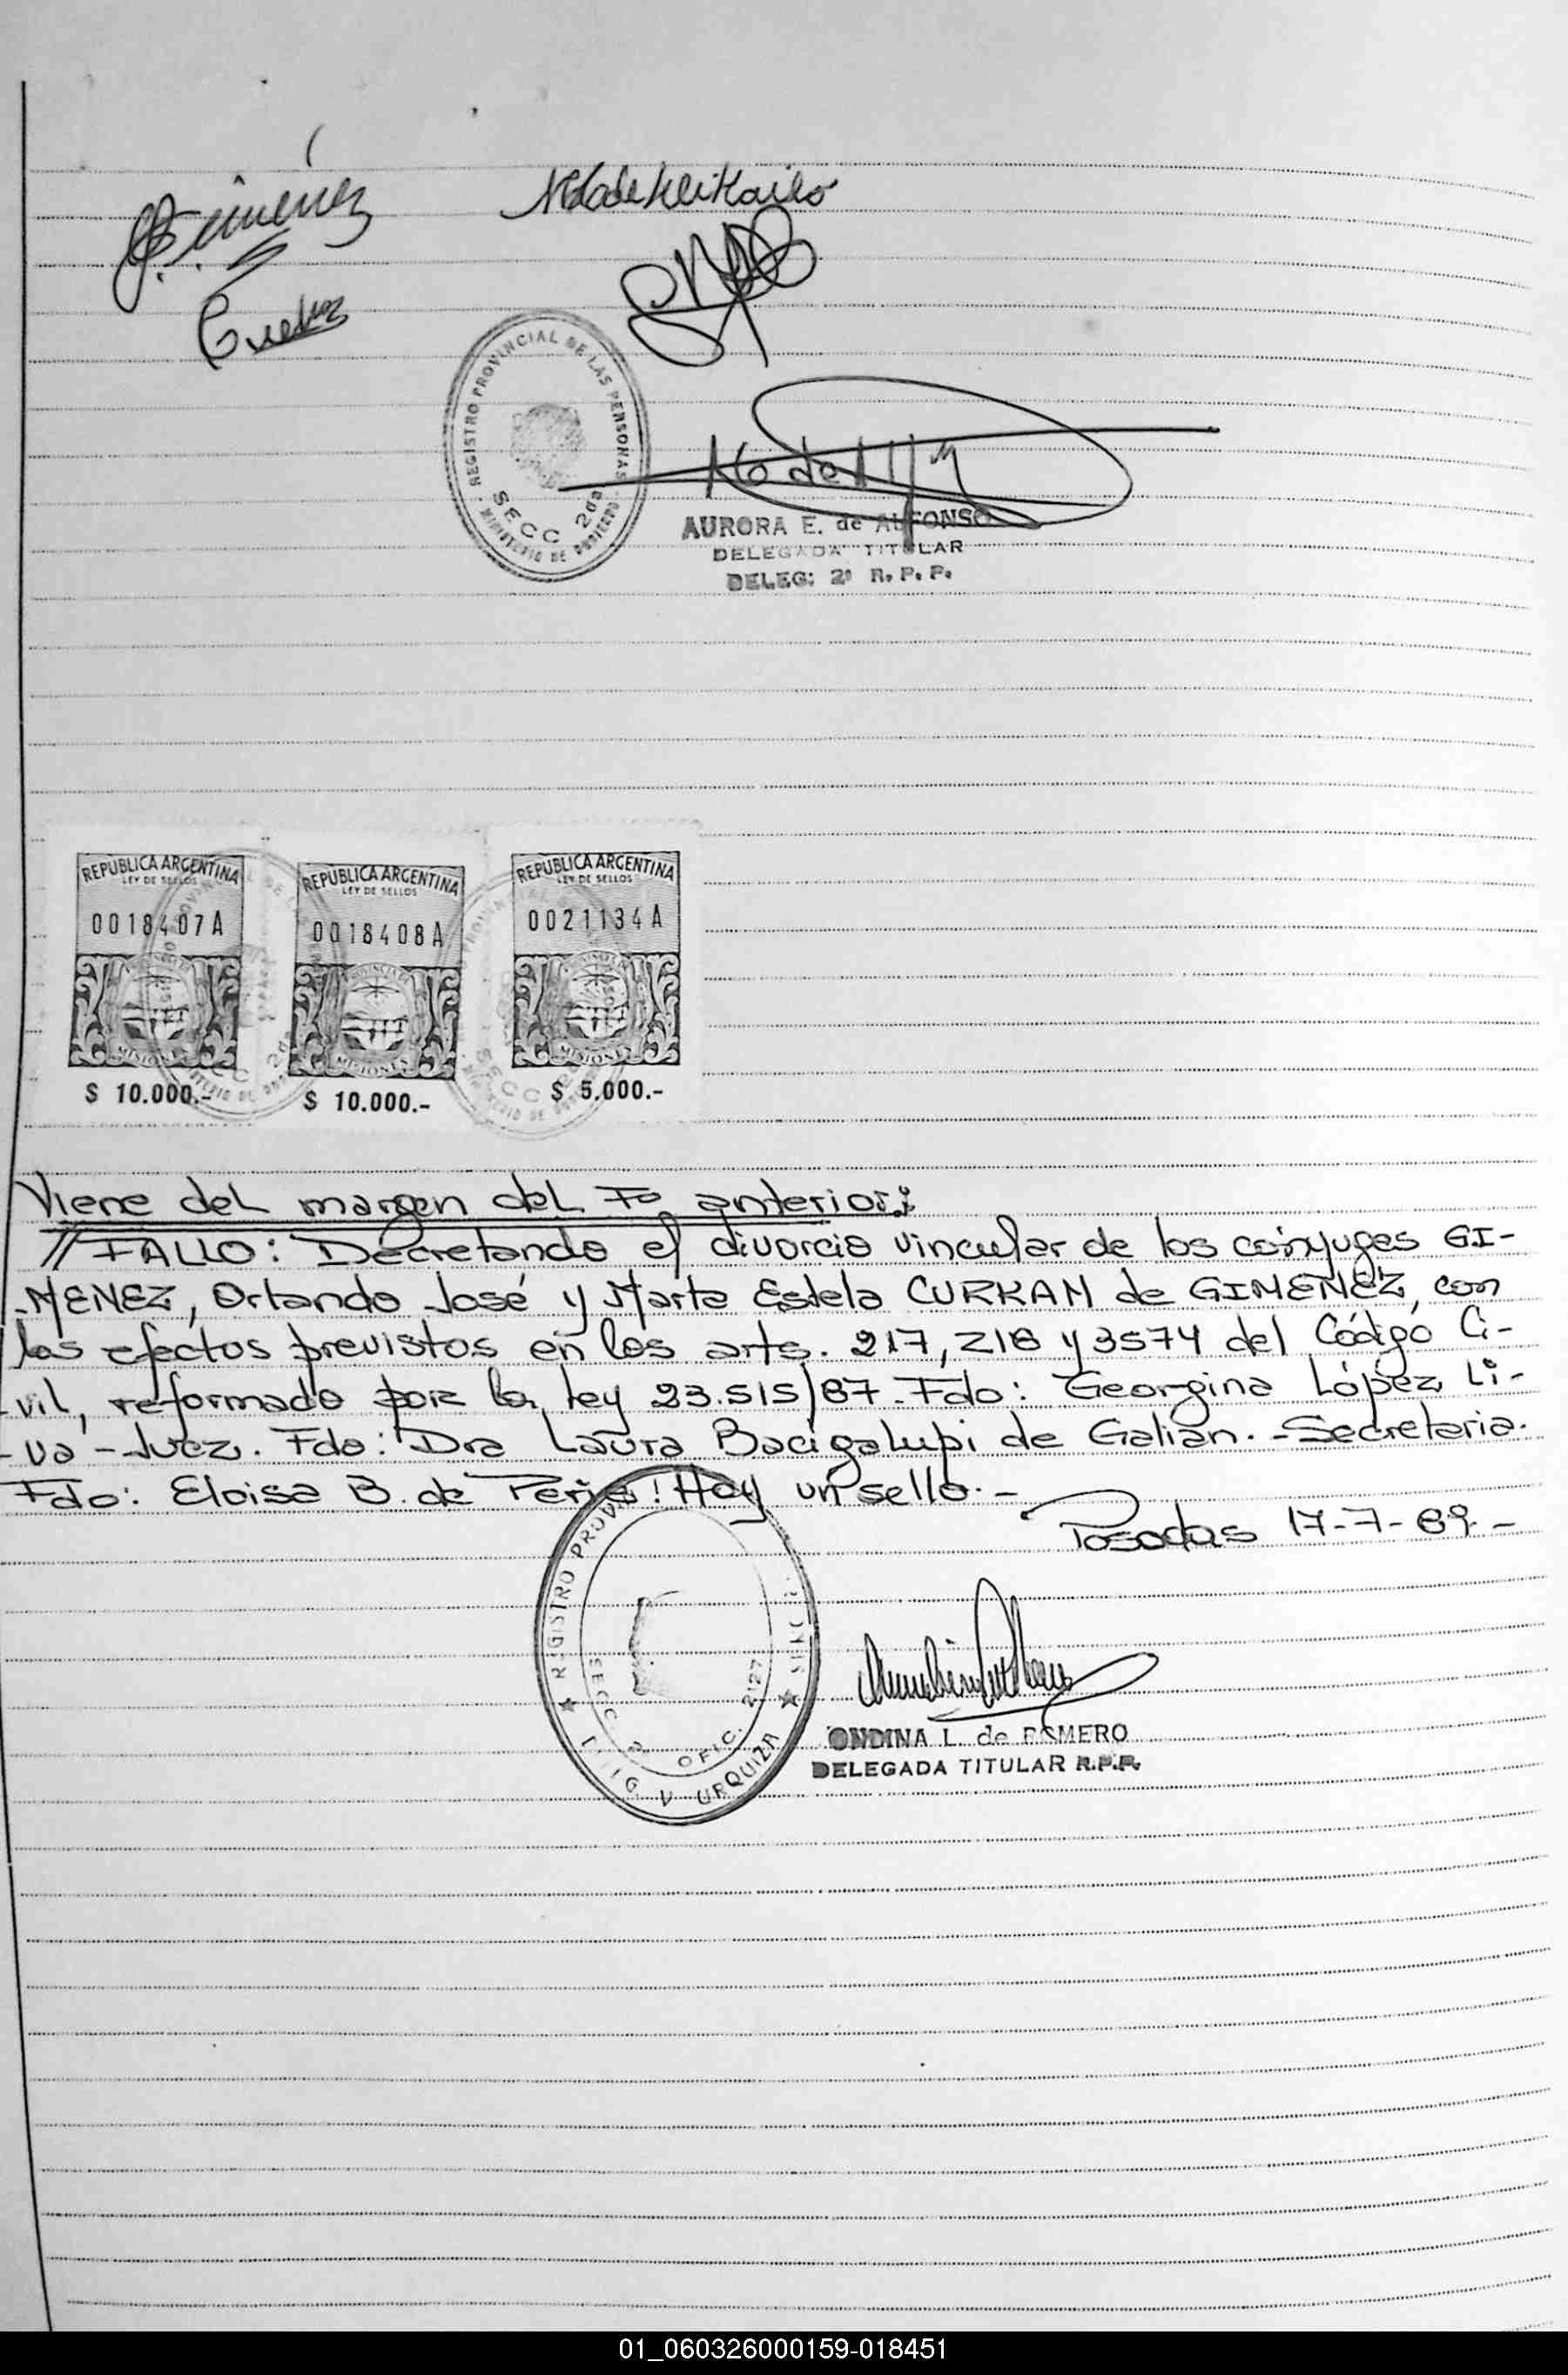 Gimenez
REGISTRO PROVINCIAL DE LAS PERSONAS
SECC 2da
MINISTERIO DE GOBIERNO
AURORA E. de ALFONSO
DELEGADA TITULAR
DELEG: 2ª R. P. P.
REPUBLICA ARGENTINA
LEY DE SELLOS
0018407A
MISIONES
$ 10.000.-
REPUBLICA ARGENTINA
LEY DE SELLOS
0018408A
MISIONES
$ 10.000.-
REPUBLICA ARGENTINA
LEY DE SELLOS
0021134A
MISIONES
$ 5.000.-
Viene del margen del Fº anterior:
// FALLO: Decretando el divorcio vincular de los cónyuges GI-
-MENEZ, Orlando José y Marta Estela CURKAN de GIMENEZ, con
los efectos previstos en los arts. 217, 218 y 3574 del Código Ci-
-vil, reformado por la ley 23.515/87. Fdo: Georgina López Li-
-va - Juez. Fdo: Dra Laura Bacigalupi de Galián. - Secretaria.
Fdo: Eloisa B. de Peña! Hay un sello. -
Posadas 17-7-89 -
REGISTRO PROV
SECC 2 OFIC. 2127
V URQUIZA
ONDINA L. de ROMERO
DELEGADA TITULAR R.P.P.
01_060326000159-018451